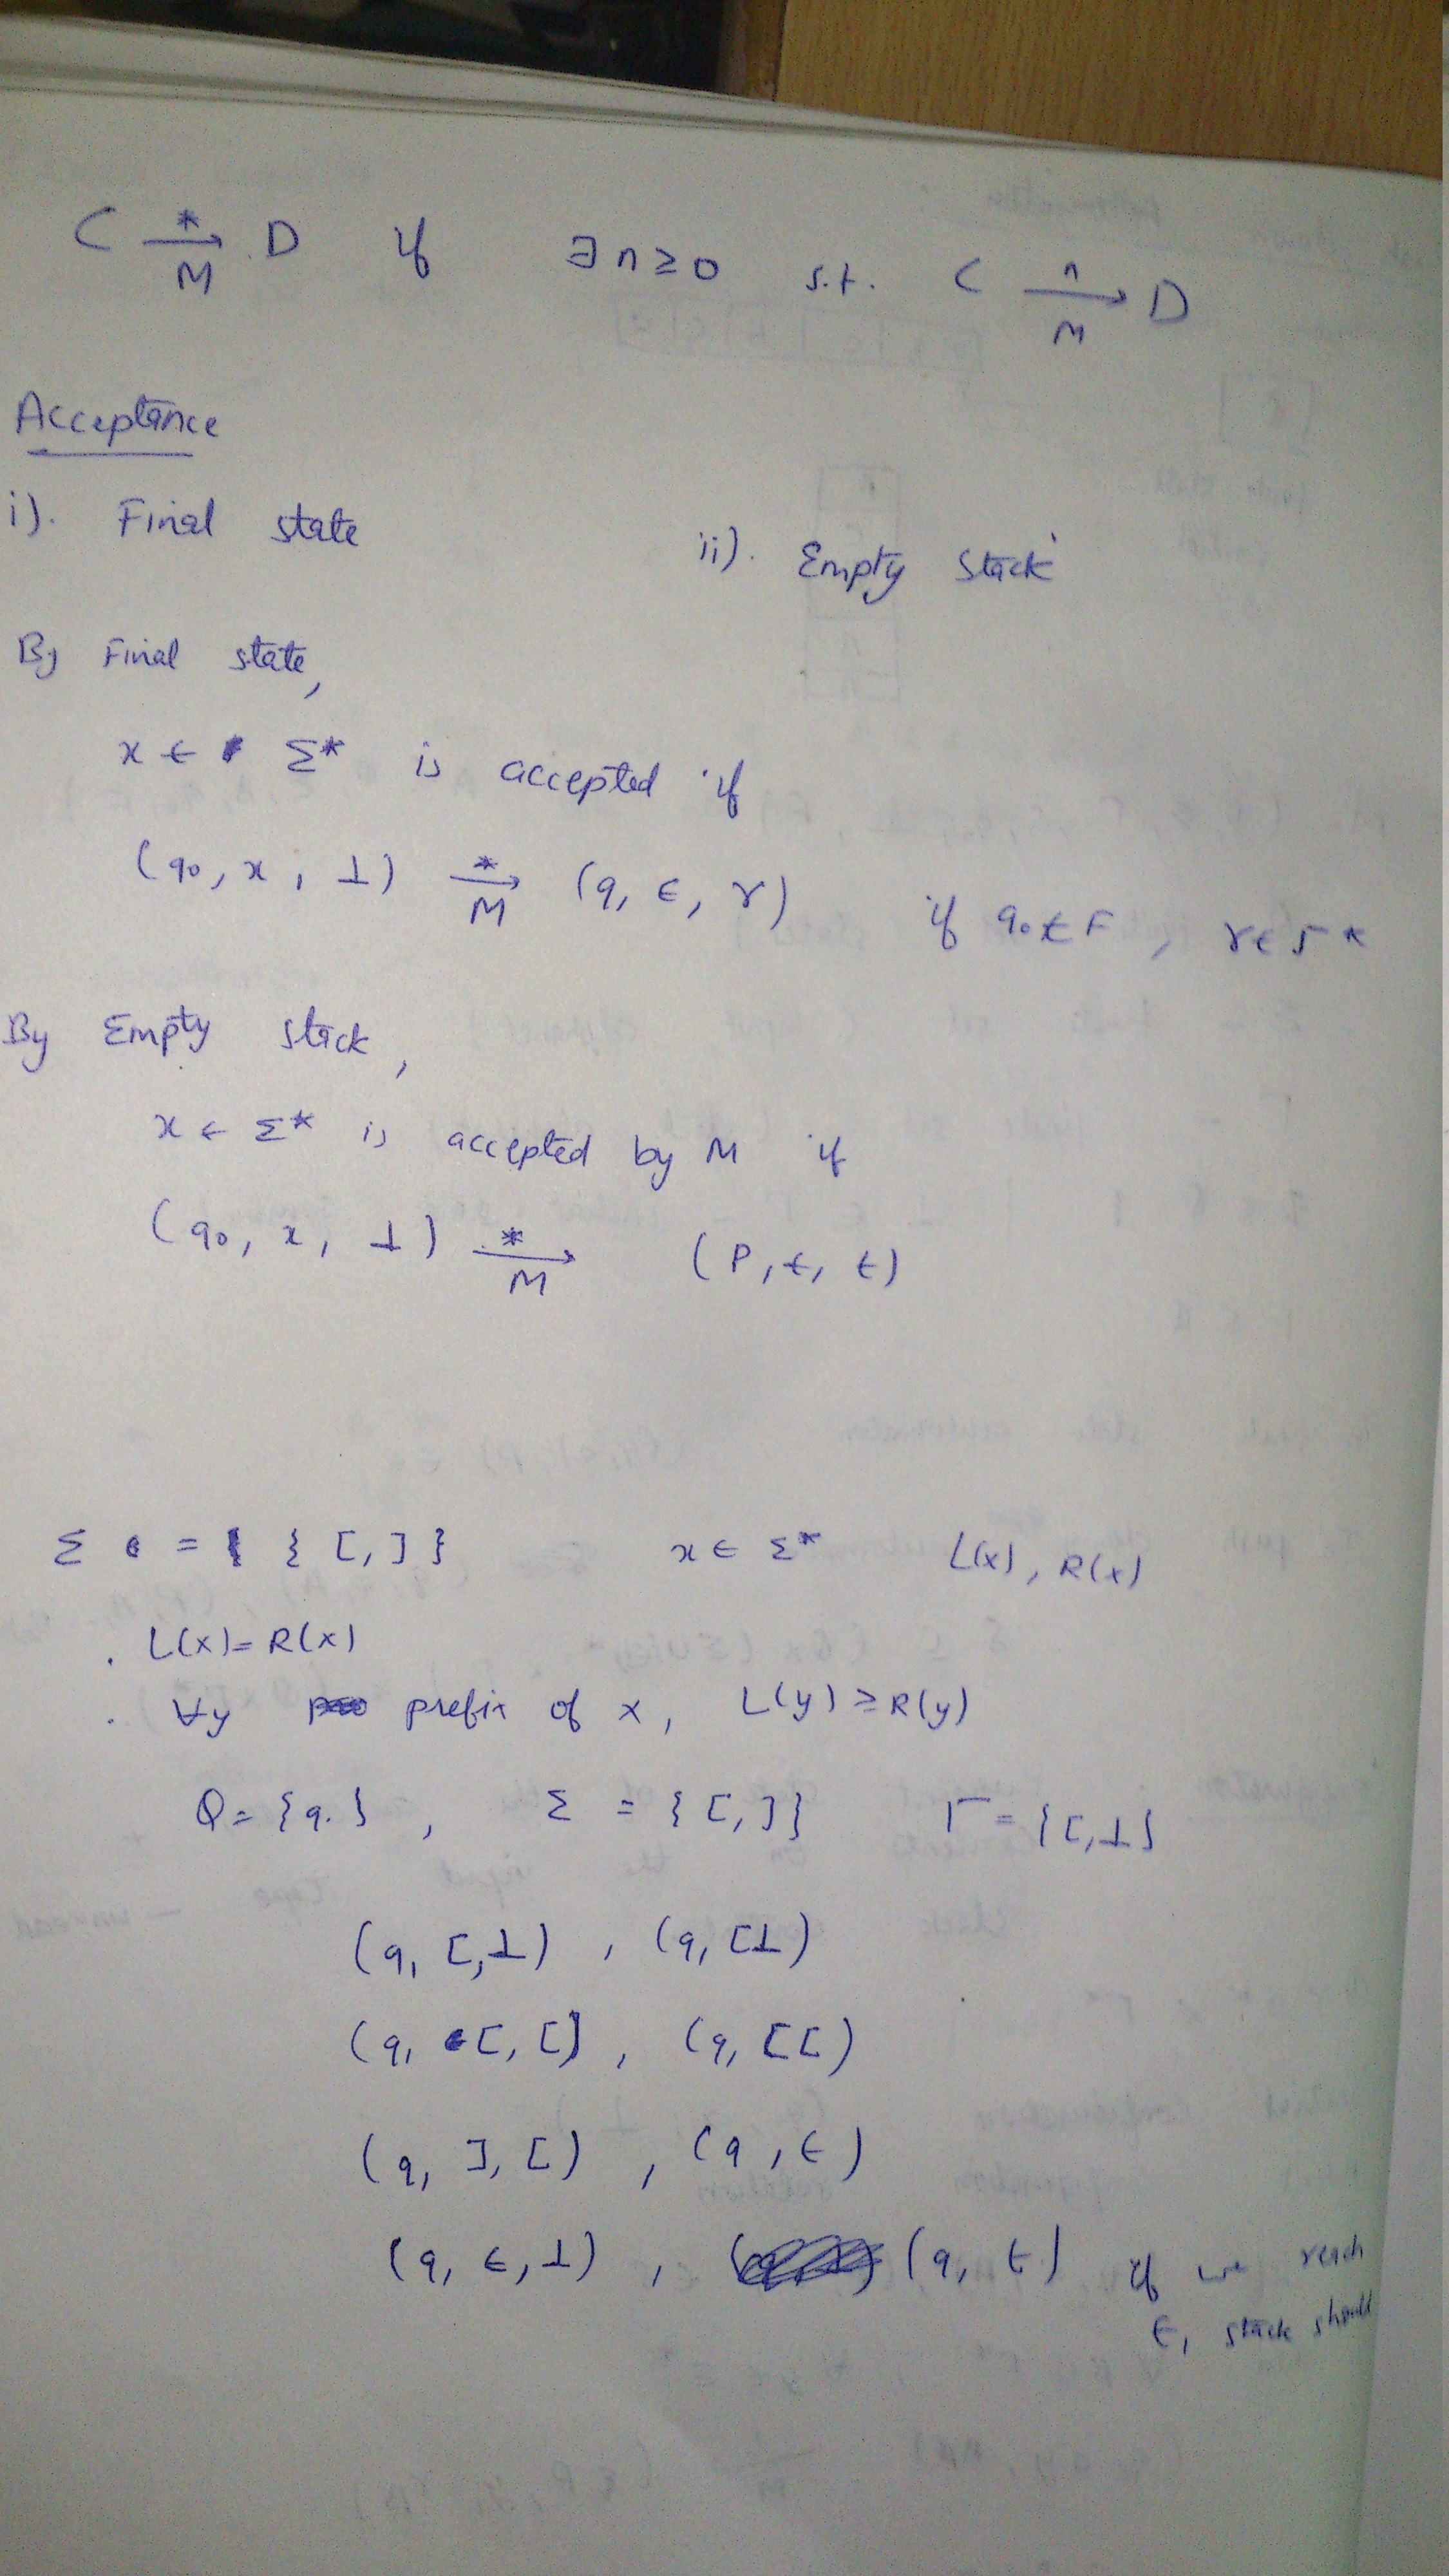 C *→M D if ∃ n ≥ 0 s.t. C n→M D
Acceptance
i). Final state ii). Empty Stack
By Final state,
x ∈ Σ* is accepted if
(q0, x, ⊥) *→M (q, ϵ, γ) if q0 ∈ F, γ ∈ Γ*
By Empty stack,
x ∈ Σ* is accepted by M if
(q0, x, ⊥) *→M (P, ϵ, ϵ)
Σ = { [, ] } x ∈ Σ* L(x), R(x)
. L(x) = R(x)
. ∀y prefix of x, L(y) ≥ R(y)
Q = {q.}, Σ = { [, ] } Γ = { [, ⊥ }
(q, [, ⊥) , (q, [⊥)
(q, [, [) , (q, [[)
(q, ], [) , (q, ϵ)
(q, ϵ, ⊥) , (q, ϵ) if we reach
ϵ, stack should